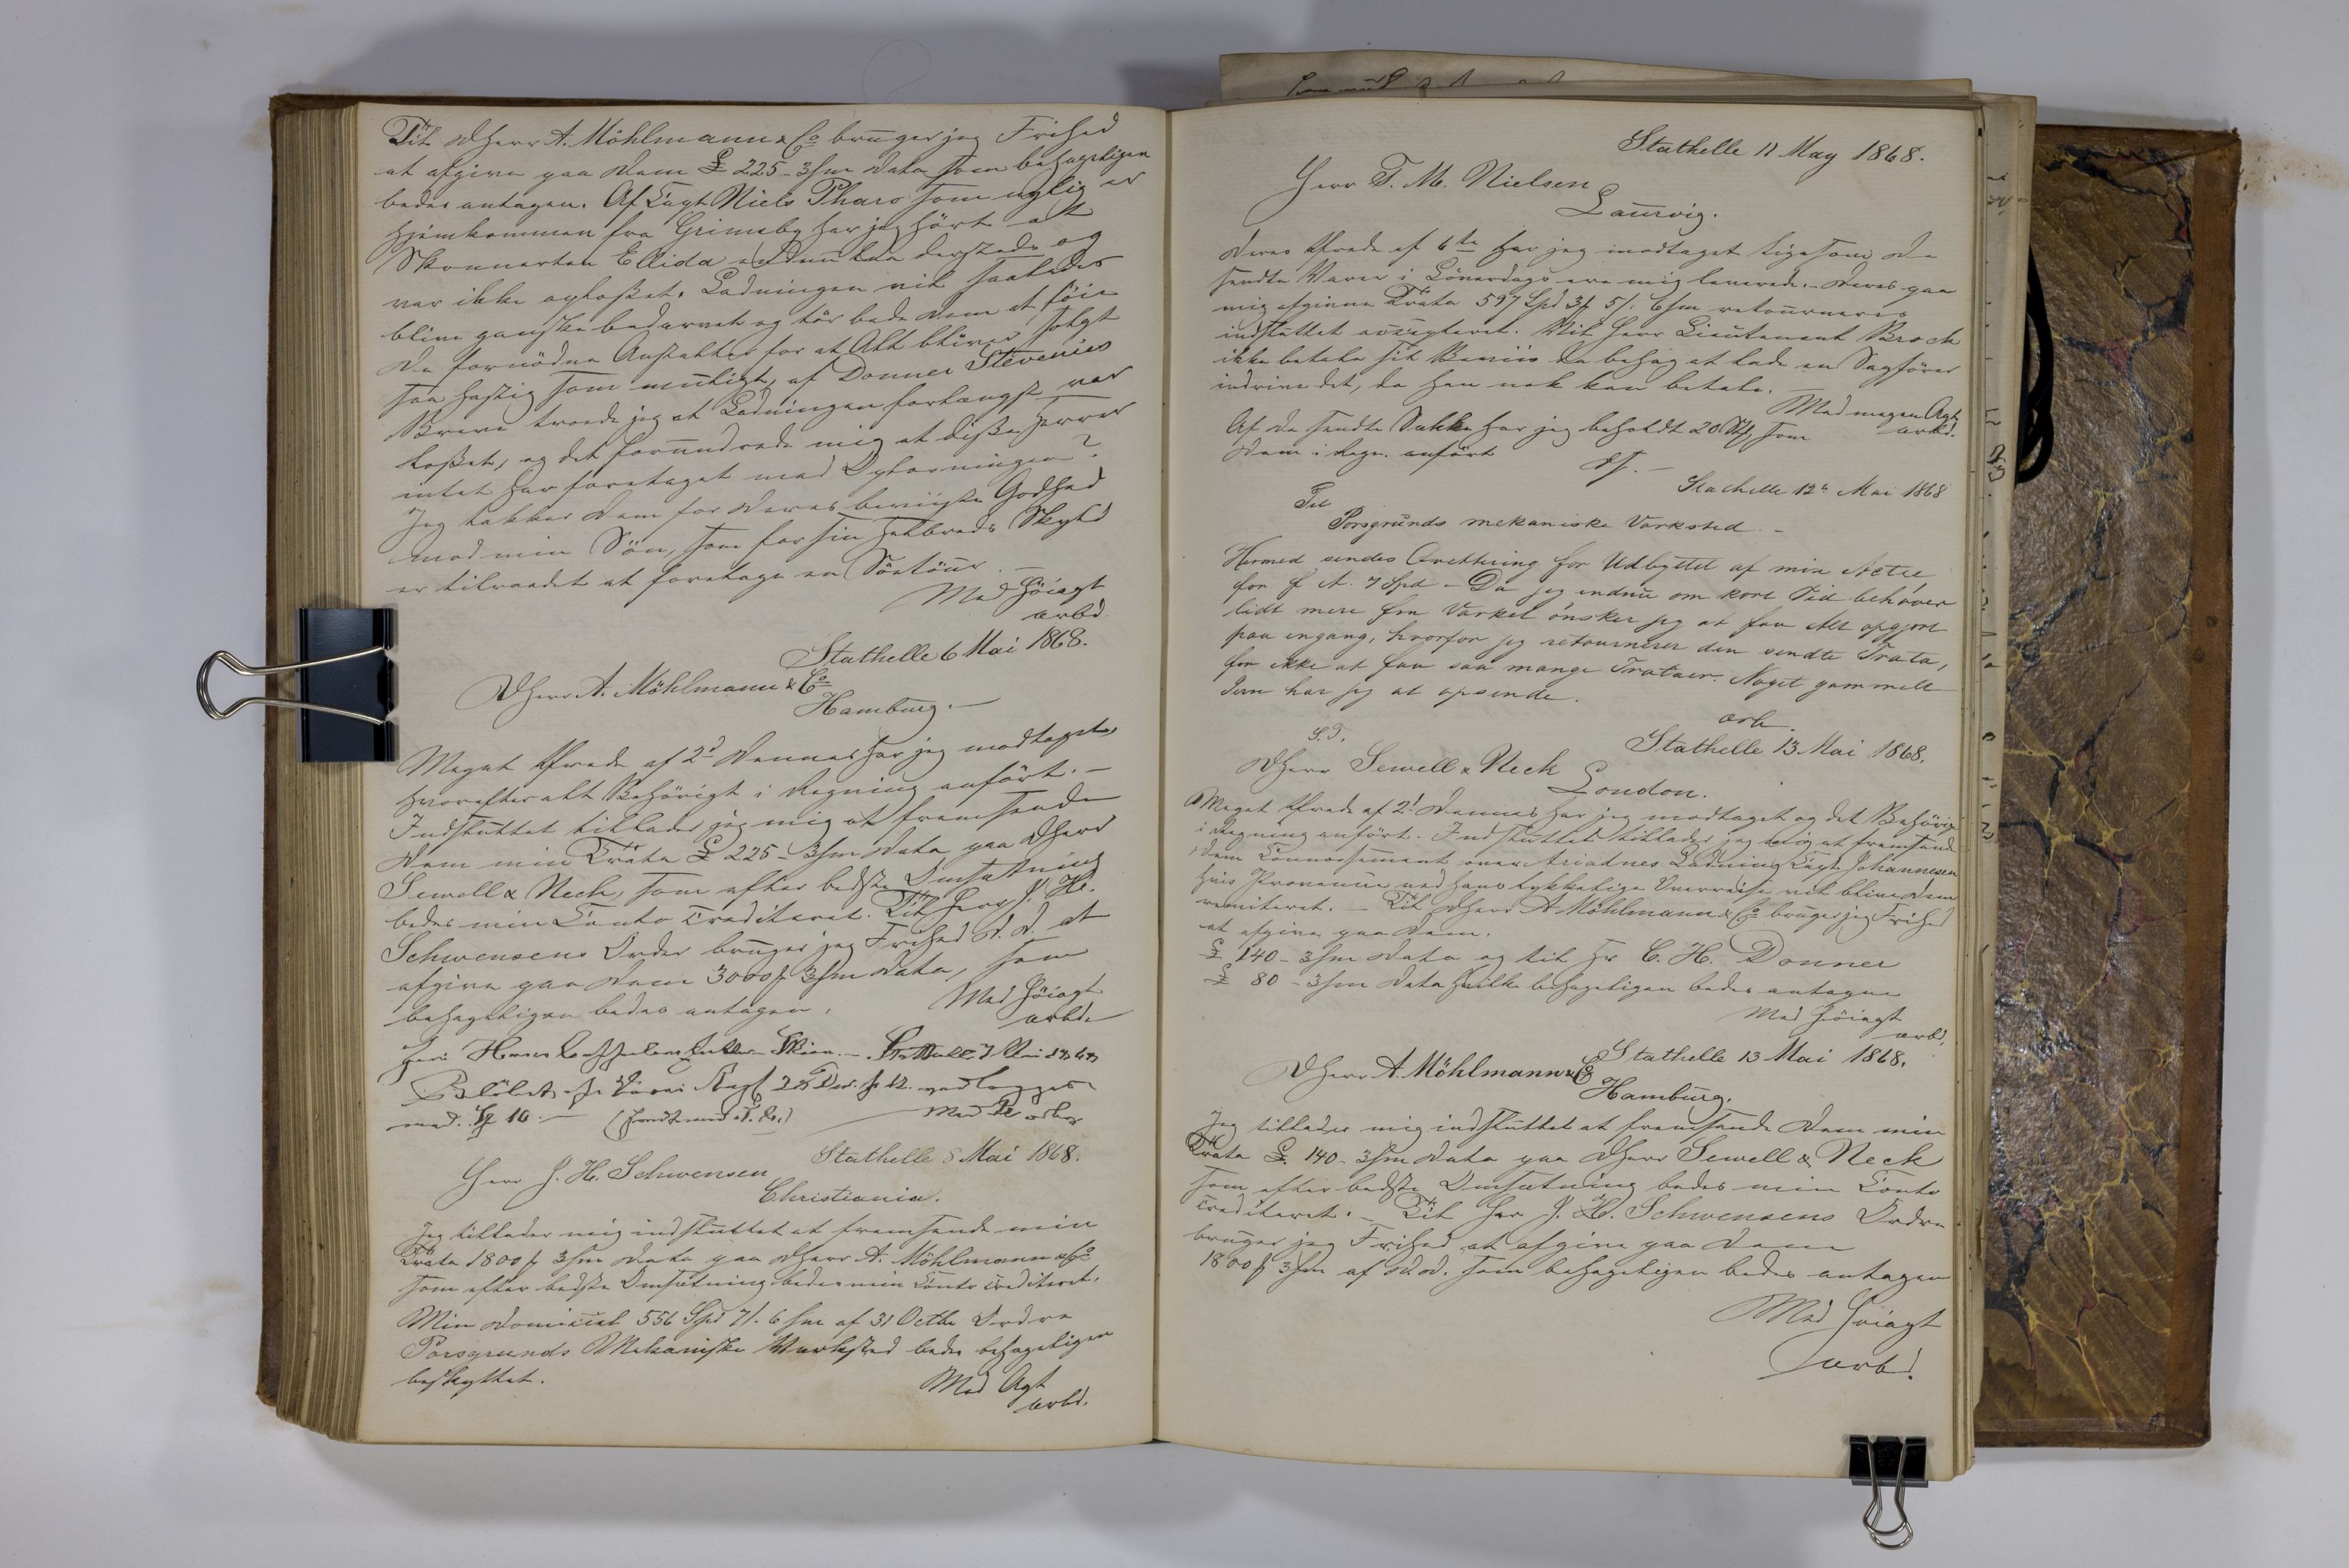 Til DHerr A. Möhlmann & Co bruger jeg Frihed
at afgive paa Dem £ 225 - 3/m dato som behageligen
bedes antagen. Af Capt Niels Pharo som nylig er
hjemkommen fra Grimsby har jeg hört at
Skonnerten Ellida endnu laa dersteds og
var ikke oplosset. Ladningen vil saaledes
blive ganske bedærvet og tör bede Dem at föie
de fornödne Anstalter for at Alt bliver solgt
saa hastig som muligt, af Donner Stevenies
Breve troede jeg at Ladningen forlængst var
losset, og det forundrede mig at disse Herrer
intet har foretaget med Oplosningen?
Jeg takker Dem for Deres beviiste Godhed
mod min Sön, som for sin Helbreds Skyld
er tilraadet at foretage en Söetour. —
Med Höiagt
arbd
Stathelle 6 Mai 1868.
DHerr A. Möhlmann & Co
Hamburg. —
Meget Ærede af 2d Dennes har jeg modtaget,
hvorefter alt Behörigt i Regning anfört. —
Indsluttet tillader jeg mig at fremsende
Dem min Trata £ 225 - 3/m dato paa DHerr
Sewell & Neck, som efter bedste Omsætning
bedes min Conto crediteret. Til Herr J. H.
Schwensens Ordre bruger jeg Frihed d. d. at
afgive paa Dem 3000 3/m dato, som
behageligen bedes antagen,
Med Höiagt
arbde
Herr Skien. — Stathelle 7 Mai 1868
med 10. —
Stathelle 8 Mai 1868.
Herr J. H. Schwensen
Christiania.
Jeg tillader mig indsluttet at fremsende min
Trata 1800 3/m dato paa DHerr A. Möhlmann & Co
som efter bedste Omsætning bedes min Conto crediteret.
Min Domicil 556 Spd 7/. 6/m af 31 Octbr Ordre
Porsgrunds Mekaniske Værksted bedes behageligen
beskyttet.
Med Agt
arbd.
Stathelle 11 May 1868.
Herr T. M. Nielsen
Laurvig.
Deres Ærede af 6te har jeg modtaget ligesom de
sendte Varer i Löverdags ere mig leverede. — Deres paa
mig afgivne Trata 597 Spd 3 5/. 6/m retourneres
indsluttet accepteret. Vil Herr Lieutenant Brock
ikke betale sit Beviis da behag at lade en Sagförer
indrive det, da han nok kan betale. —
Med megen Agt
arbd.
Af de sendte Sække har jeg beholdt 20 som
Dem i Regn. anfört
dss. —
Stathelle 12te Mai 1868
Til
Porsgrunds mekaniske Værksted. —
Hermed sendes Qvittering for Udbyttet af min Actie
for f. A. 7 Spd — Da jeg endnu om kort Tid behöver
lidt mere fra Værket önsker jeg at faa Alt opgjort
paa engang, hvorfor jeg retournerer den sendte Trata,
for ikke at faa saa mange Tratter. Noget gammelt
Jern har jeg at opsende.
arb
S. T.
Stathelle 13. Mai 1868.
DHerr Sewell & Neck
London.
Meget Ærede af 2d Dennes har jeg modtaget og det Behörige
i Regning anfört. Indsluttet tillader jeg mig at fremsende
Dem Connossement over Ariadnes Ladning Capt. Johannesen
hvis Provenue ved hans lykkelige Overreise vil blive Dem
remitteret. — Til DHerr A Möhlmann & Co bruger jeg Frihed
at afgive paa Dem.
£ 140 - 3/m dato og til Hr C. H. Donner
£ 80 - 3/m dato hvilke behageligen bedes antagne
Med Höiagt
arbd.
Stathelle 13 Mai 1868.
DHerr A. Möhlmann & Co
Hamburg.
Jeg tillader mig indsluttet at fremsende Dem min
Trata £ 140 - 3/m dato paa DHerr Sewell & Neck
som efter bedste Omsætning bedes min Conto
crediteret. — Til Herr J. H. Schwensens Ordre
bruger jeg Frihed at afgive paa Dem
1800 3/m af d. d. som behageligen bedes antagen
Med Höiagt
arbd